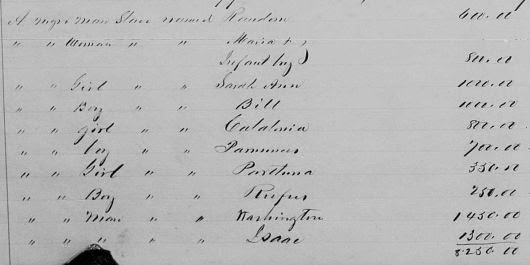 A negro Man Slave named Random 600.00
" " Woman " " Maria &
Infant boy } 800.00
" " Girl " " Sarah Ann 1000.00
" " Boy " " Bill 1000.00
" " girl " " 800.00
" " boy " " 700.00
" " Girl " " 350.00
" " Boy " " Rufus 250.00
" " Man " " Washington 1450.00
" " " " " Isaac 1300.00
8250.00